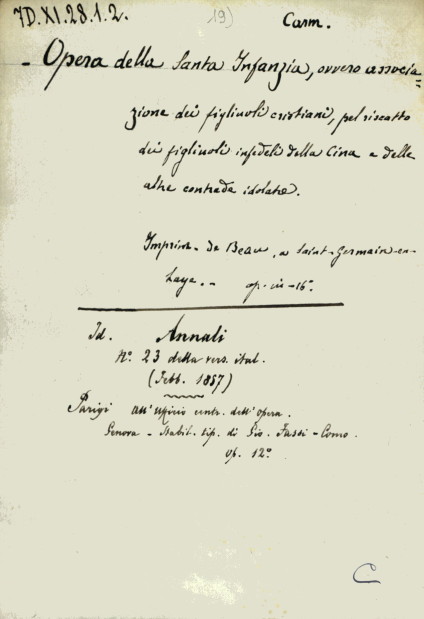 7D.XI.28.1.2.
19)
Carm.
- Opera della Santa Infanzia, ovvero associa=
zione dei figliuoli cristiani, pel riscatto
dei figliuoli infedeli della Cina e delle
altre contrade idolatre.
Imprim. de Beau, a Saint-Germain-en-
Laye. - op. in-16°.
Id. Annali
N.° 23 della vers. ital.
(Febb. 1857)
Parigi all'uffizio centr. dell'opera.
Genova - Stabil. tip. di Gio. Fassi-Como.
op. 12°
C